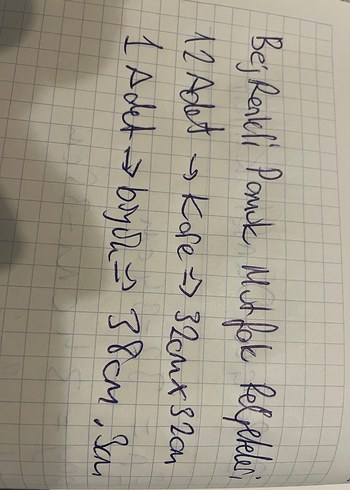 Bej Renkli Pamuk Mutfak
12 Adet → Kare → 32cm x 32cm
1 Adet → büyük → 38cm